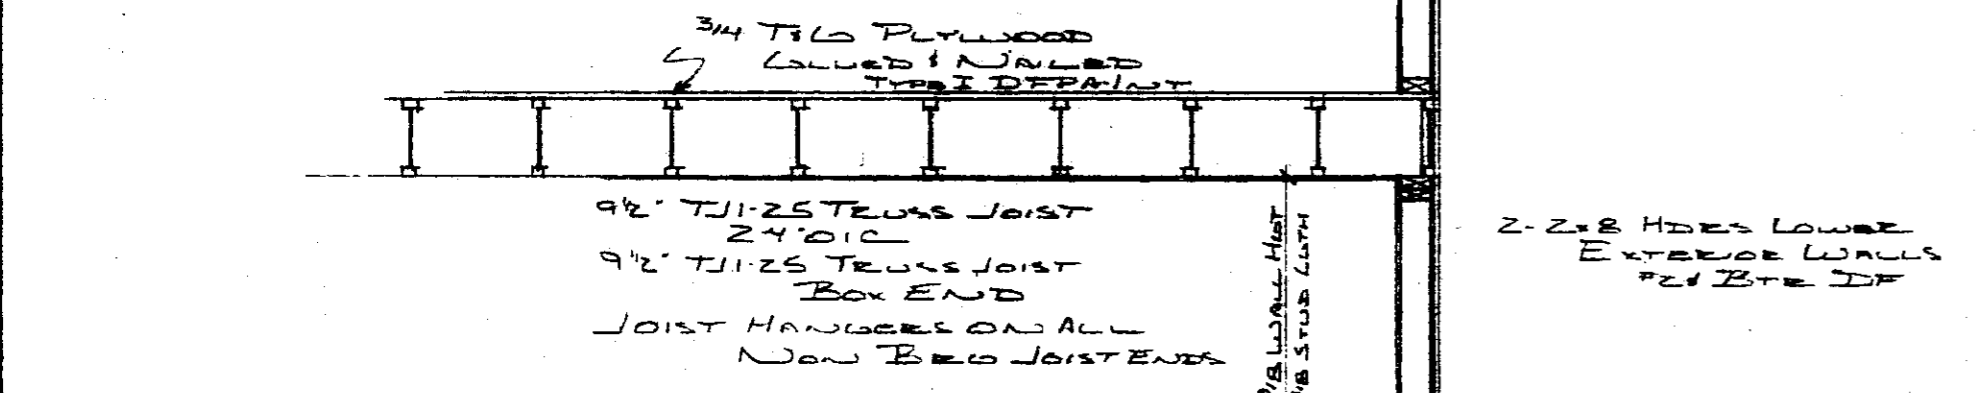 3/4 T&G PLYWOOD
GLUED & NAILED
TYPE I DFPA INT
9 1/2" TJI-25 TRUSS JOIST
24" O/C
9 1/2" TJI-25 TRUSS JOIST
BOX END
JOIST HANGERS ON ALL
NON BRG JOIST ENDS
WALL HGHT
STUD LGTH
2-2x8 HDRS LOWER
EXTERIOR WALLS
#2& BTR DF